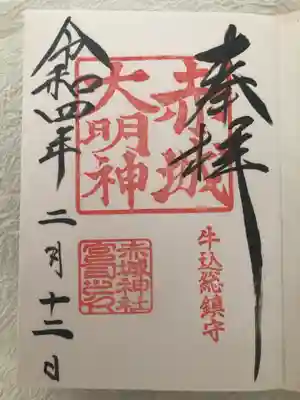 奉拝
赤城
大明神
牛込総鎮守
赤城神社
宮司之印
令和四年 二月 十二日